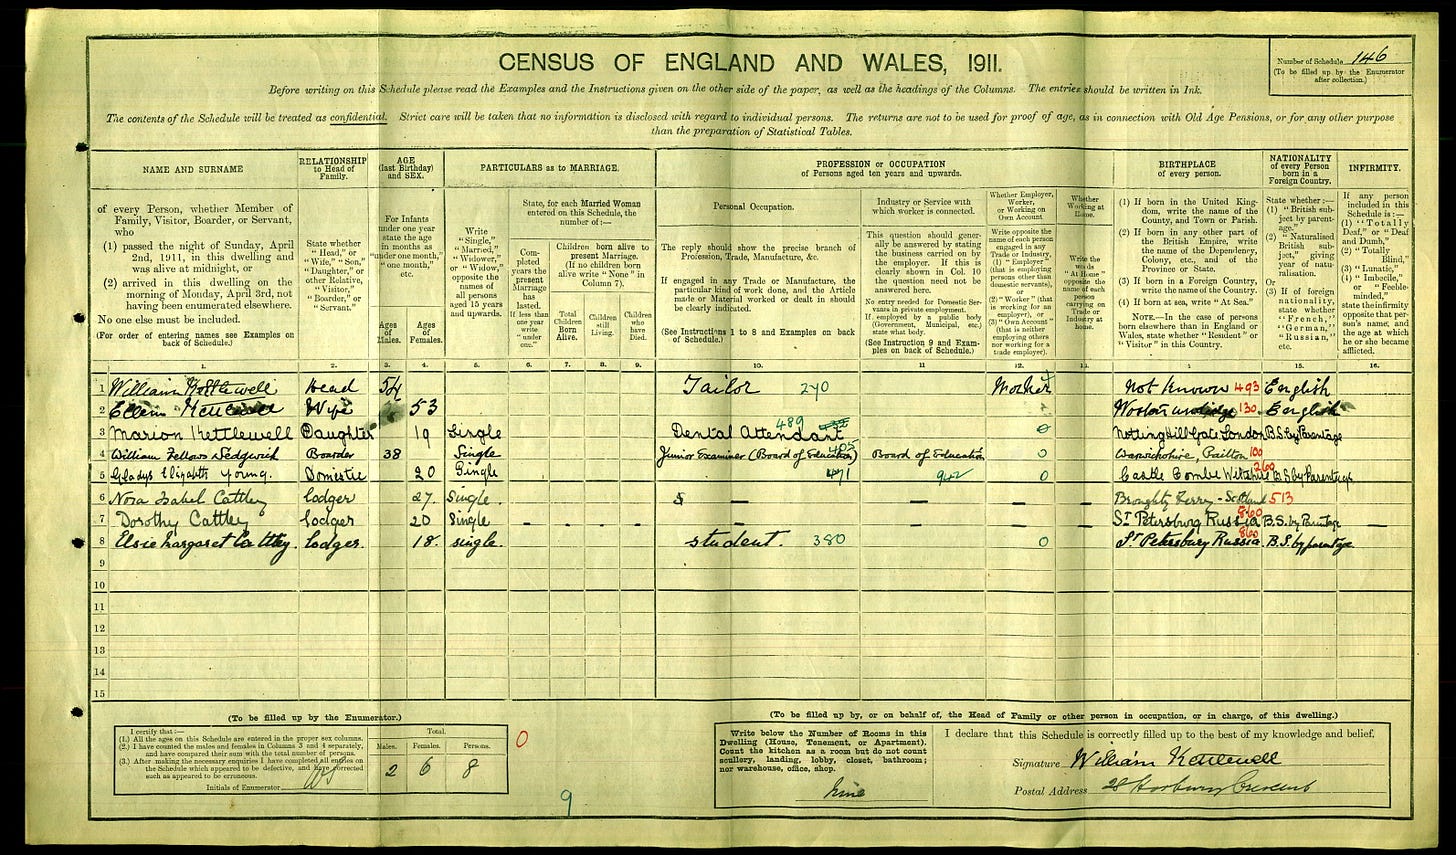 CENSUS OF ENGLAND AND WALES, 1911.
Number of Schedule 146
(To be filled up by the Enumerator
after collection.)
Before writing on this Schedule please read the Examples and the Instructions given on the other side of the paper, as well as the headings of the Columns. The entries should be written in Ink.
The contents of the Schedule will be treated as confidential. Strict care will be taken that no information is disclosed with regard to individual persons. The returns are not to be used for proof of age, as in connection with Old Age Pensions, or for any other purpose
than the preparation of Statistical Tables.
NAME AND SURNAME
of every Person, whether Member of
Family, Visitor, Boarder, or Servant,
who
(1) passed the night of Sunday, April
2nd, 1911, in this dwelling and
was alive at midnight, or
(2) arrived in this dwelling on the
morning of Monday, April 3rd, not
having been enumerated elsewhere.
No one else must be included.
(For order of entering names see Examples on
back of Schedule.)
RELATIONSHIP
to Head of
Family.
State whether
"Head," or
"Wife," "Son,"
"Daughter," or
other Relative,
"Visitor,"
"Boarder," or
"Servant."
AGE
(last Birthday)
and SEX.
For Infants
under one year
state the age
in months as
"under one month,"
"one month,"
etc.
Ages
of
Males.
Ages
of
Females.
PARTICULARS as to MARRIAGE.
Write
"Single,"
"Married,"
"Widower,"
or "Widow,"
opposite the
names of
all persons
aged 15 years
and upwards.
State, for each Married Woman
entered on this Schedule, the
number of:—
Completed
years the
present
Marriage
has
lasted.
If less than
one year
write
"under
one."
Children born alive to
present Marriage.
(If no children born
alive write "None" in
Column 7).
Total
Children
Born
Alive.
Children
still
Living.
Children
who
have
Died.
PROFESSION or OCCUPATION
of Persons aged ten years and upwards.
Personal Occupation.
The reply should show the precise branch of
Profession, Trade, Manufacture, &c.
If engaged in any Trade or Manufacture, the
particular kind of work done, and the Article
made or Material worked or dealt in should
be clearly indicated.
(See Instructions 1 to 8 and Examples on back
of Schedule.)
Industry or Service with
which worker is connected.
This question should generally
be answered by stating
the business carried on
by the employer. If this is
clearly shown in Col. 10
the question need not be
answered here.
No entry needed for Domestic Servants
in private employment.
If employed by a public body
(Government, Municipal, etc.)
state what body.
(See Instruction 9 and Examples
on back of Schedule.)
Whether Employer,
Worker,
or Working on
Own Account
Write opposite the
name of each person
engaged in any
Trade or Industry,
(1) "Employer"
(that is employing
persons other than
domestic servants),
or
(2) "Worker" (that
is working for an
employer), or
(3) "Own Account"
(that is neither
employing others
nor working for a
trade employer).
Whether
Working at
Home.
Write the
words
"At Home"
opposite the
name of each
person
carrying on
Trade or
Industry at
home.
BIRTHPLACE
of every person.
(1) If born in the United Kingdom,
write the name of the
County, and Town or Parish.
(2) If born in any other part of
the British Empire, write
the name of the Dependency,
Colony, etc., and of the
Province or State.
(3) If born in a Foreign Country,
write the name of the Country.
(4) If born at sea, write "At Sea."
NOTE.—In the case of persons
born elsewhere than in England or
Wales, state whether "Resident" or
"Visitor" in this Country.
NATIONALITY
of every Person
born in a
Foreign Country.
State whether:—
(1) "British subject
by parentage,"
(2) "Naturalised
British subject,"
giving
year of naturalisation.
Or
(3) If of foreign
nationality,
state whether
"French,"
"German,"
"Russian,"
etc.
INFIRMITY.
If any person
included in this
Schedule is:—
(1) "Totally
Deaf," or "Deaf
and Dumb,"
(2) "Totally
Blind,"
(3) "Lunatic,"
(4) "Imbecile,"
or "Feeble-minded,"
state the infirmity
opposite that person's
name, and
the age at which
he or she became
afflicted.
1. 2. 3. 4. 5. 6. 7. 8. 9. 10. 11. 12. 13. 14. 15. 16.
1 William Kettlewell Head 54 Tailor 270 Worker Not Known 493 English
2 Ellen Kettlewell Wife 53 130 English
3 Marion Kettlewell Daughter 19 Single Dental Attendant 489 Notting Hill Gate London B.S. by Parentage
4 William Fellows Sedgwick Boarder 38 Single Junior Examiner (Board of Education) Board of Education 0 Warwickshire, Pailton 100
5 Gladys Elizabeth Young. Domestic 20 Single 942 0 Castle Combe Wiltshire B.S by Parentage
6 Nora Isabel Cattley lodger 27. Single. — — Broughty Ferry - Scotland 513
7 Dorothy Cattley lodger 20 Single St Petersburg Russia 860 B.S. by Parentage
8 Elsie Margaret Cattley. lodger. 18. single. student. 380 0 St Petersburg Russia. 860 B.S. by parentage
9
10
11
12
13
14
15
(To be filled up by the Enumerator.)
I certify that:—
(1.) All the ages on this Schedule are entered in the proper sex columns.
(2.) I have counted the males and females in Columns 3 and 4 separately,
and have compared their sum with the total number of persons.
(3.) After making the necessary enquiries I have completed all entries on
the Schedule which appeared to be defective, and have corrected
such as appeared to be erroneous.
Initials of Enumerator
Total.
Males. Females. Persons.
2 6 8
0
9
(To be filled up by, or on behalf of, the Head of Family or other person in occupation, or in charge, of this dwelling.)
Write below the Number of Rooms in this
Dwelling (House, Tenement, or Apartment).
Count the kitchen as a room but do not count
scullery, landing, lobby, closet, bathroom;
nor warehouse, office, shop.
nine
I declare that this Schedule is correctly filled up to the best of my knowledge and belief.
Signature William Kettlewell
Postal Address 28 Horbury Crescent